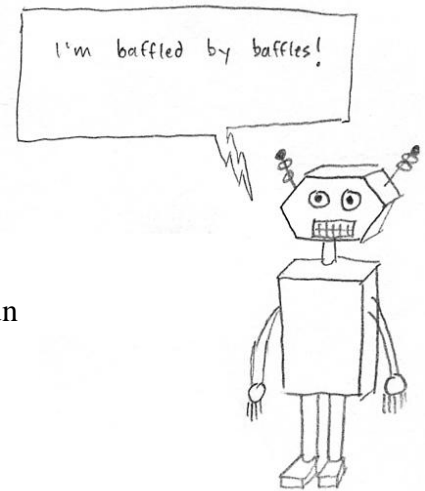 I'm baffled by baffles!